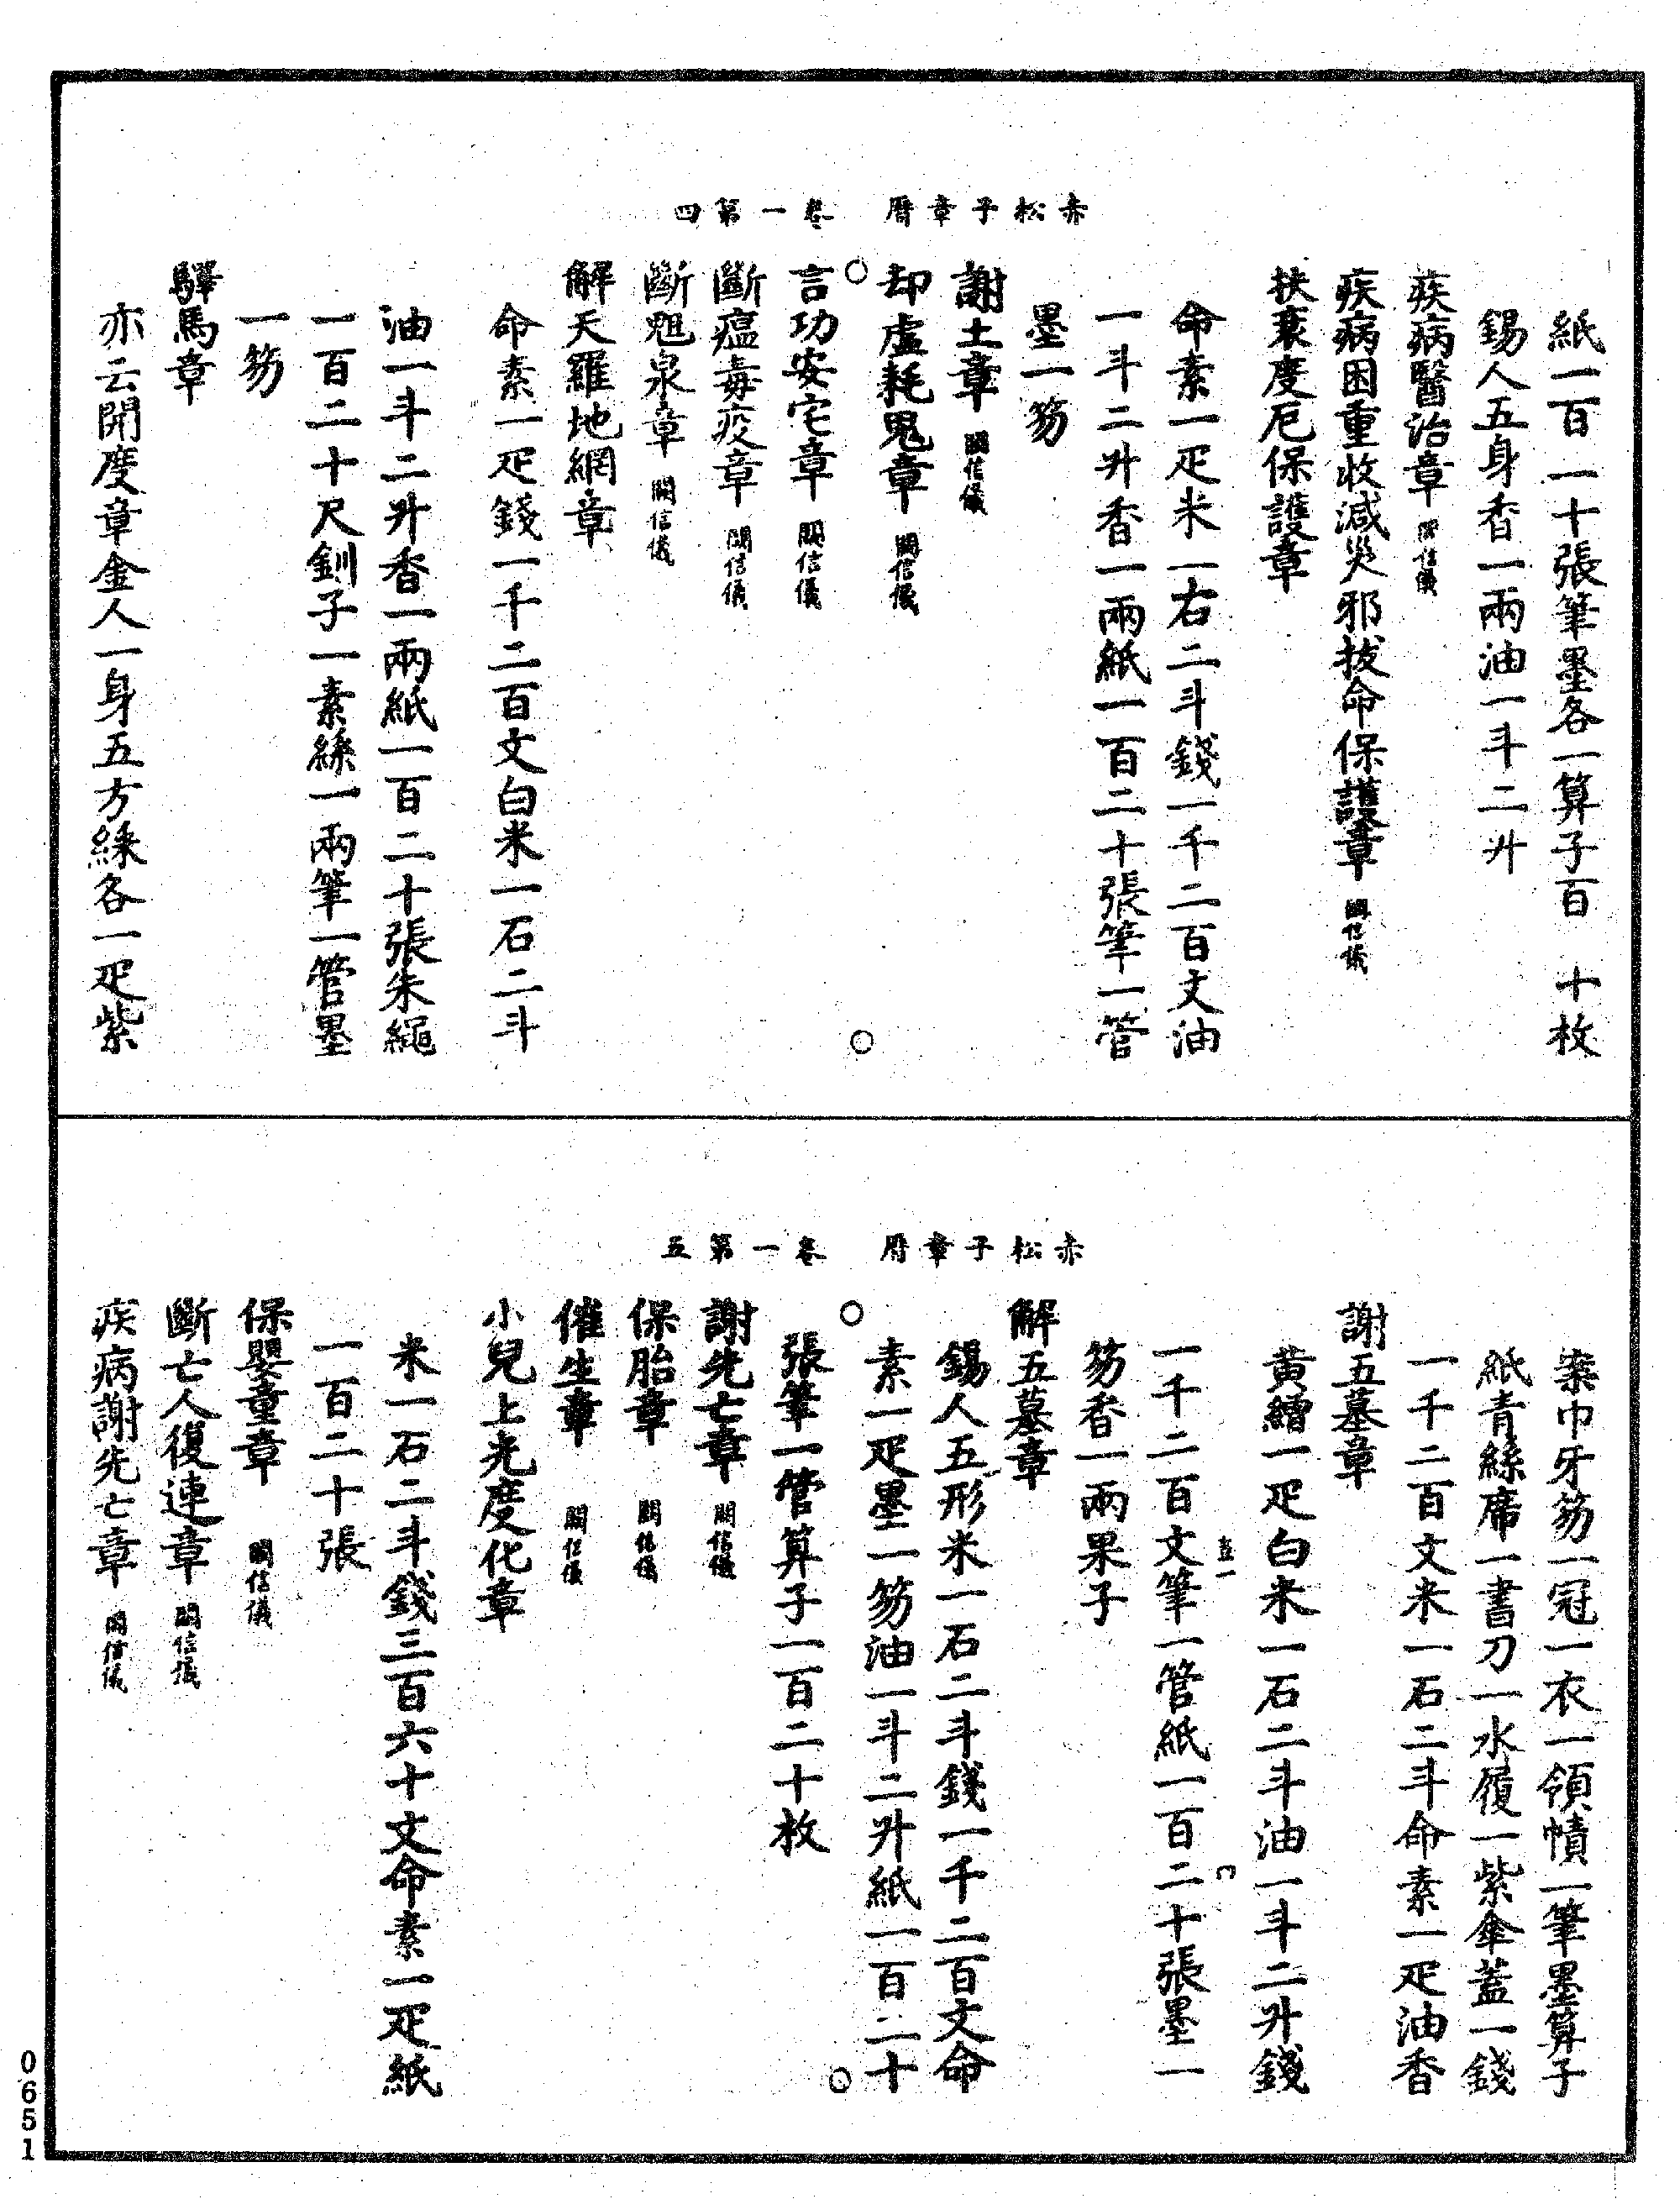 赤松子章曆　卷一第四
紙一百一十張筆墨各一算子百　十枚
錫人五身香一兩油一斗二升
疾病醫治章　闕信儀
疾病困重收減災邪拔命保護章　闕信儀
扶衰度厄保護章
命素一疋米一石二斗錢一千二百文油
一斗二升香一兩紙一百二十張筆一管
墨一笏
謝土章　闕信儀
却虛耗鬼章　闕信儀
言功安宅章　闕信儀
斷瘟毒疫章　闕信儀
斷䰡泉章　闕信儀
解天羅地網章
命素一疋錢一千二百文白米一石二斗
油一斗二升香一兩紙一百二十張朱繩
一百二十尺釧子一素絲一兩筆一管墨
一笏
驛馬章
亦云開度章金人一身五方綵各一疋紫
赤松子章曆　卷一第五
案巾牙笏一冠一衣一領幘一筆墨算子
紙青絲席一書刀一水履一紫傘蓋一錢
一千二百文米一石二斗命素一疋油香
謝五墓章
黃繒一疋白米一石二斗油一斗二升錢
一千二百文筆一管紙一百二十張墨一
笏香一兩果子
解五墓章
錫人五形米一石二斗錢一千二百文命
素一疋墨一笏油一斗二升紙一百二十
張筆一管算子一百二十枚
謝先亡章　闕信儀
保胎章　闕信儀
催生章　闕信儀
小兒上光度化章
米一石二斗錢三百六十文命素一疋紙
一百二十張
保嬰童章　闕信儀
斷亡人復連章　闕信儀
疾病謝先亡章　闕信儀
0651